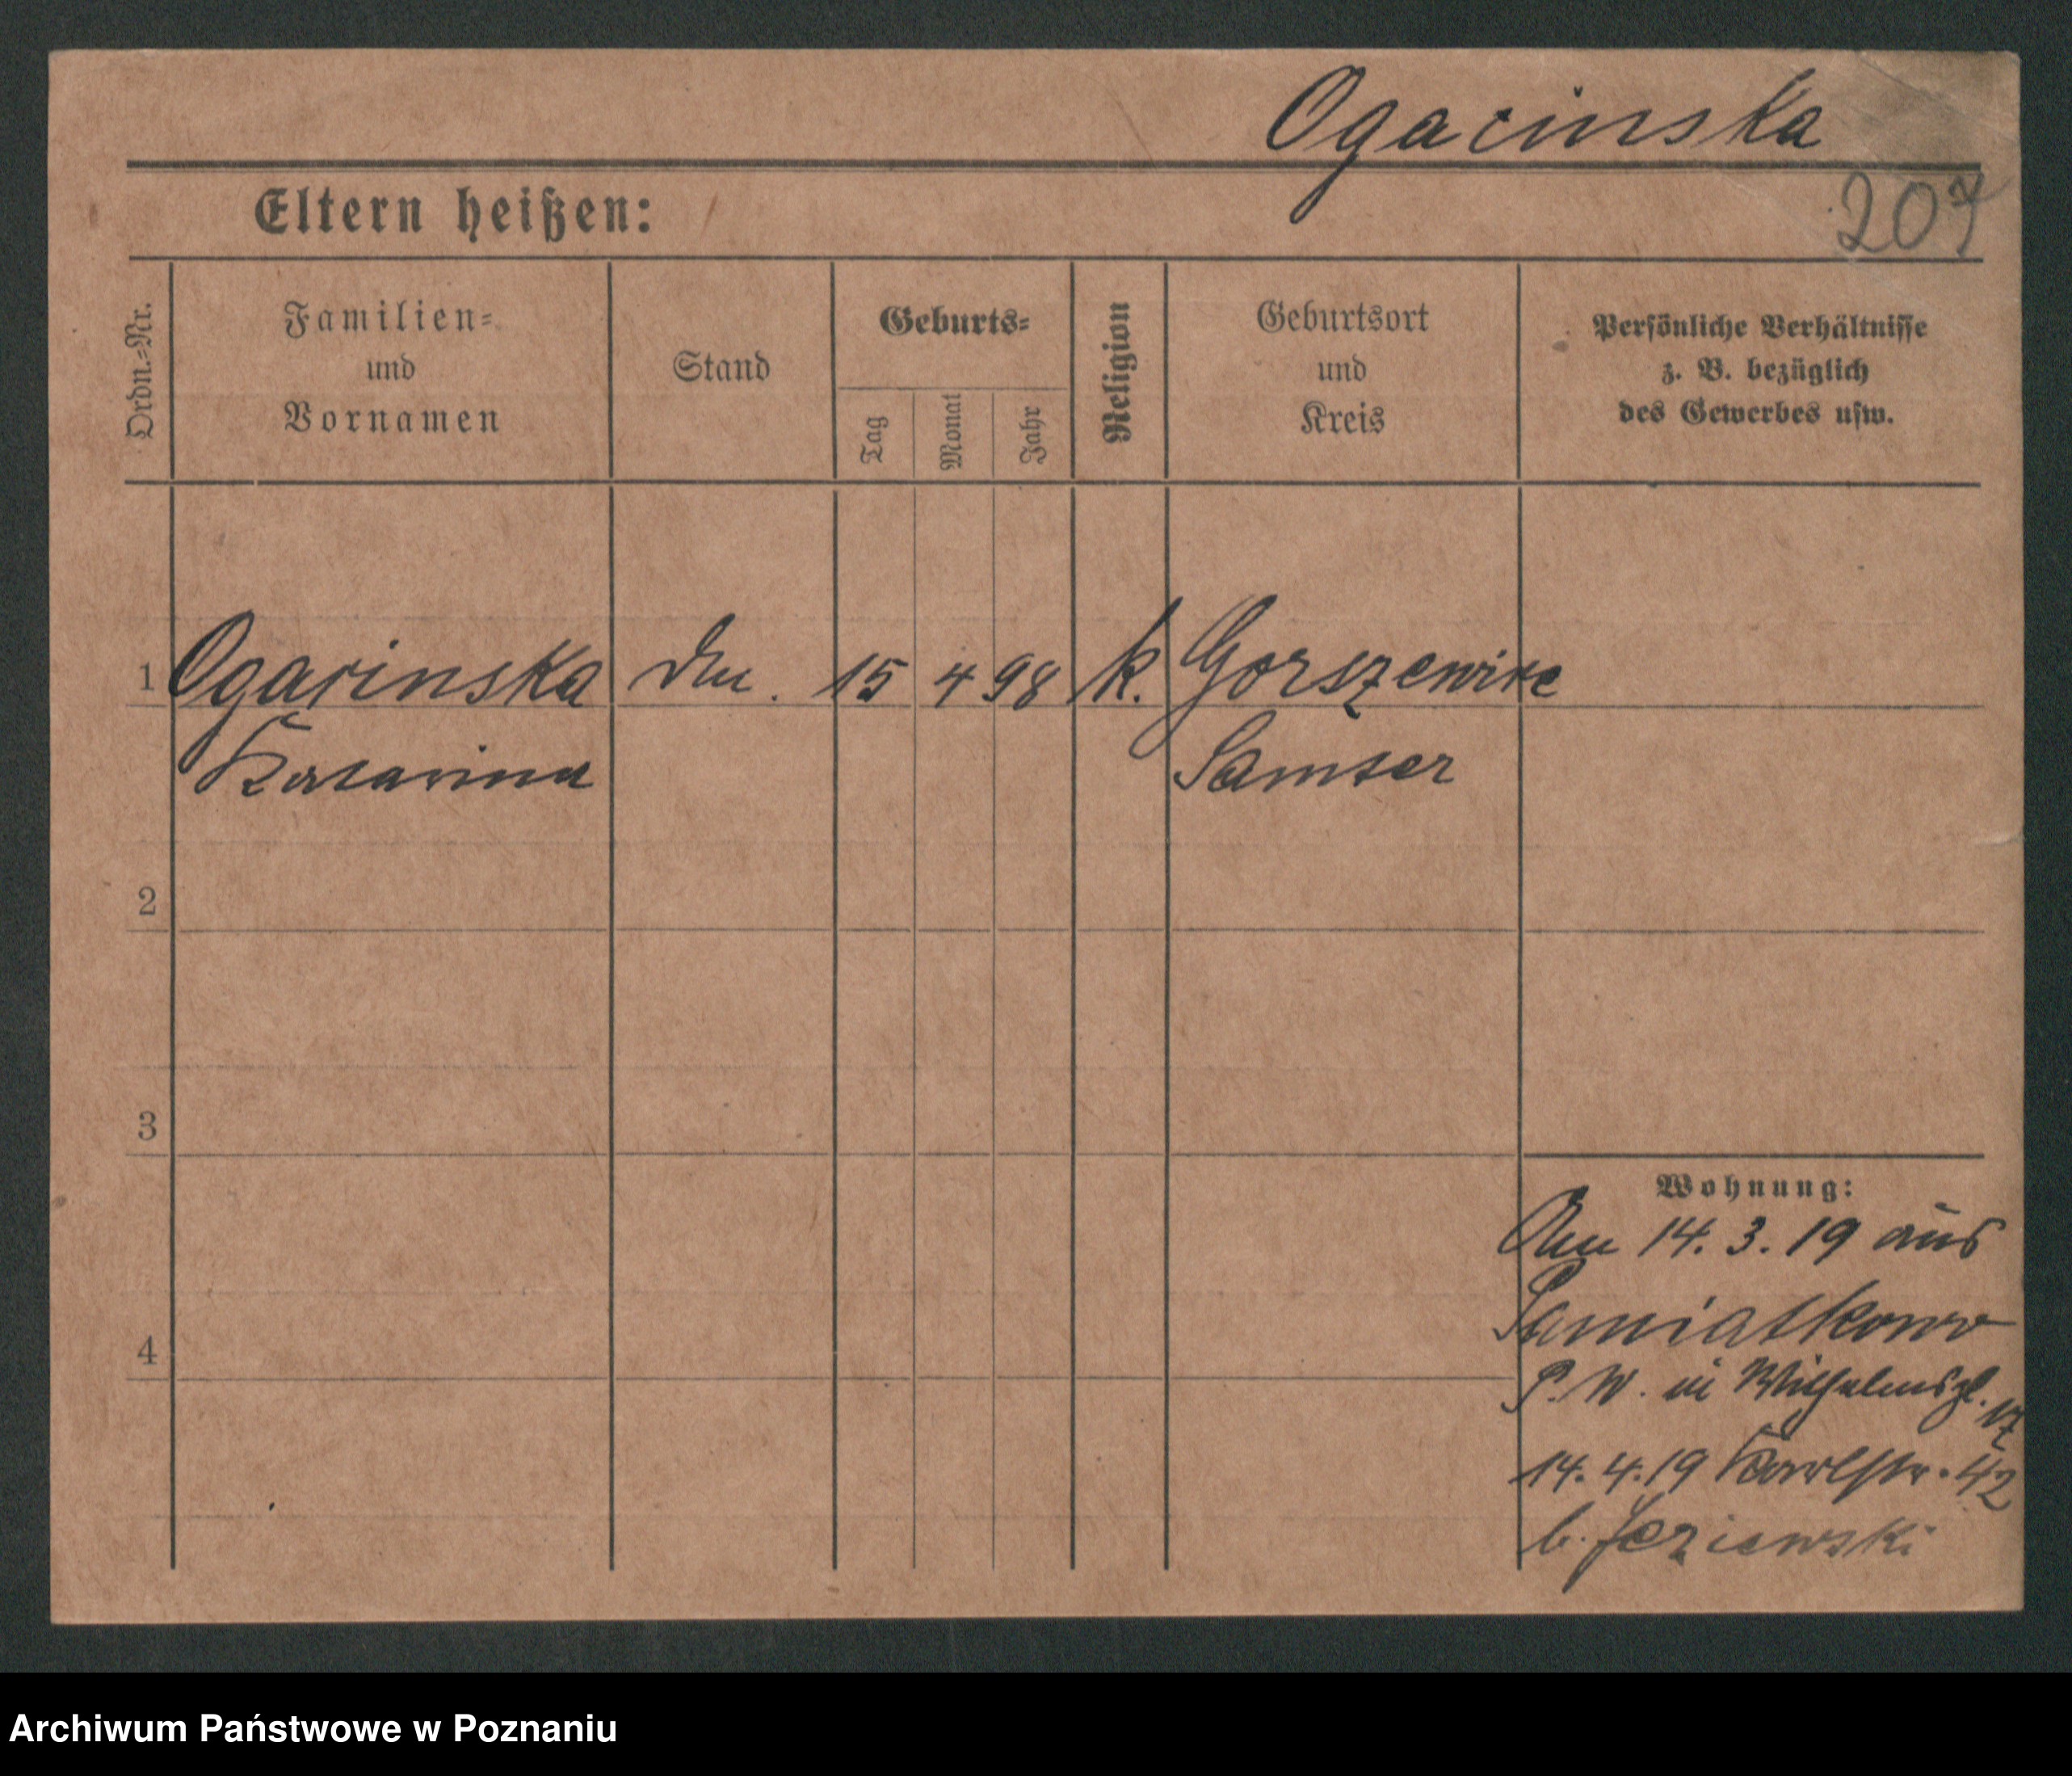 Ogarinska
207
Eltern heißen:
Ordn.-Nr.
Familien-
und
Vornamen
Stand
Geburts-
Tag
Monat
Jahr
Religion
Geburtsort
und
Kreis
Persönliche Verhältnisse
z. B. bezüglich
des Gewerbes usw.
1 Ogarinska 15 4 98 k. Gorszewice
Katarina Samter
2
3
4
Wohnung:
14. 3. 19 aus
Samiatkowo
P. W. in Wilhelmspl. 17
14. 4. 19 Karlstr. 42
b. Jeziewski
Archiwum Państwowe w Poznaniu